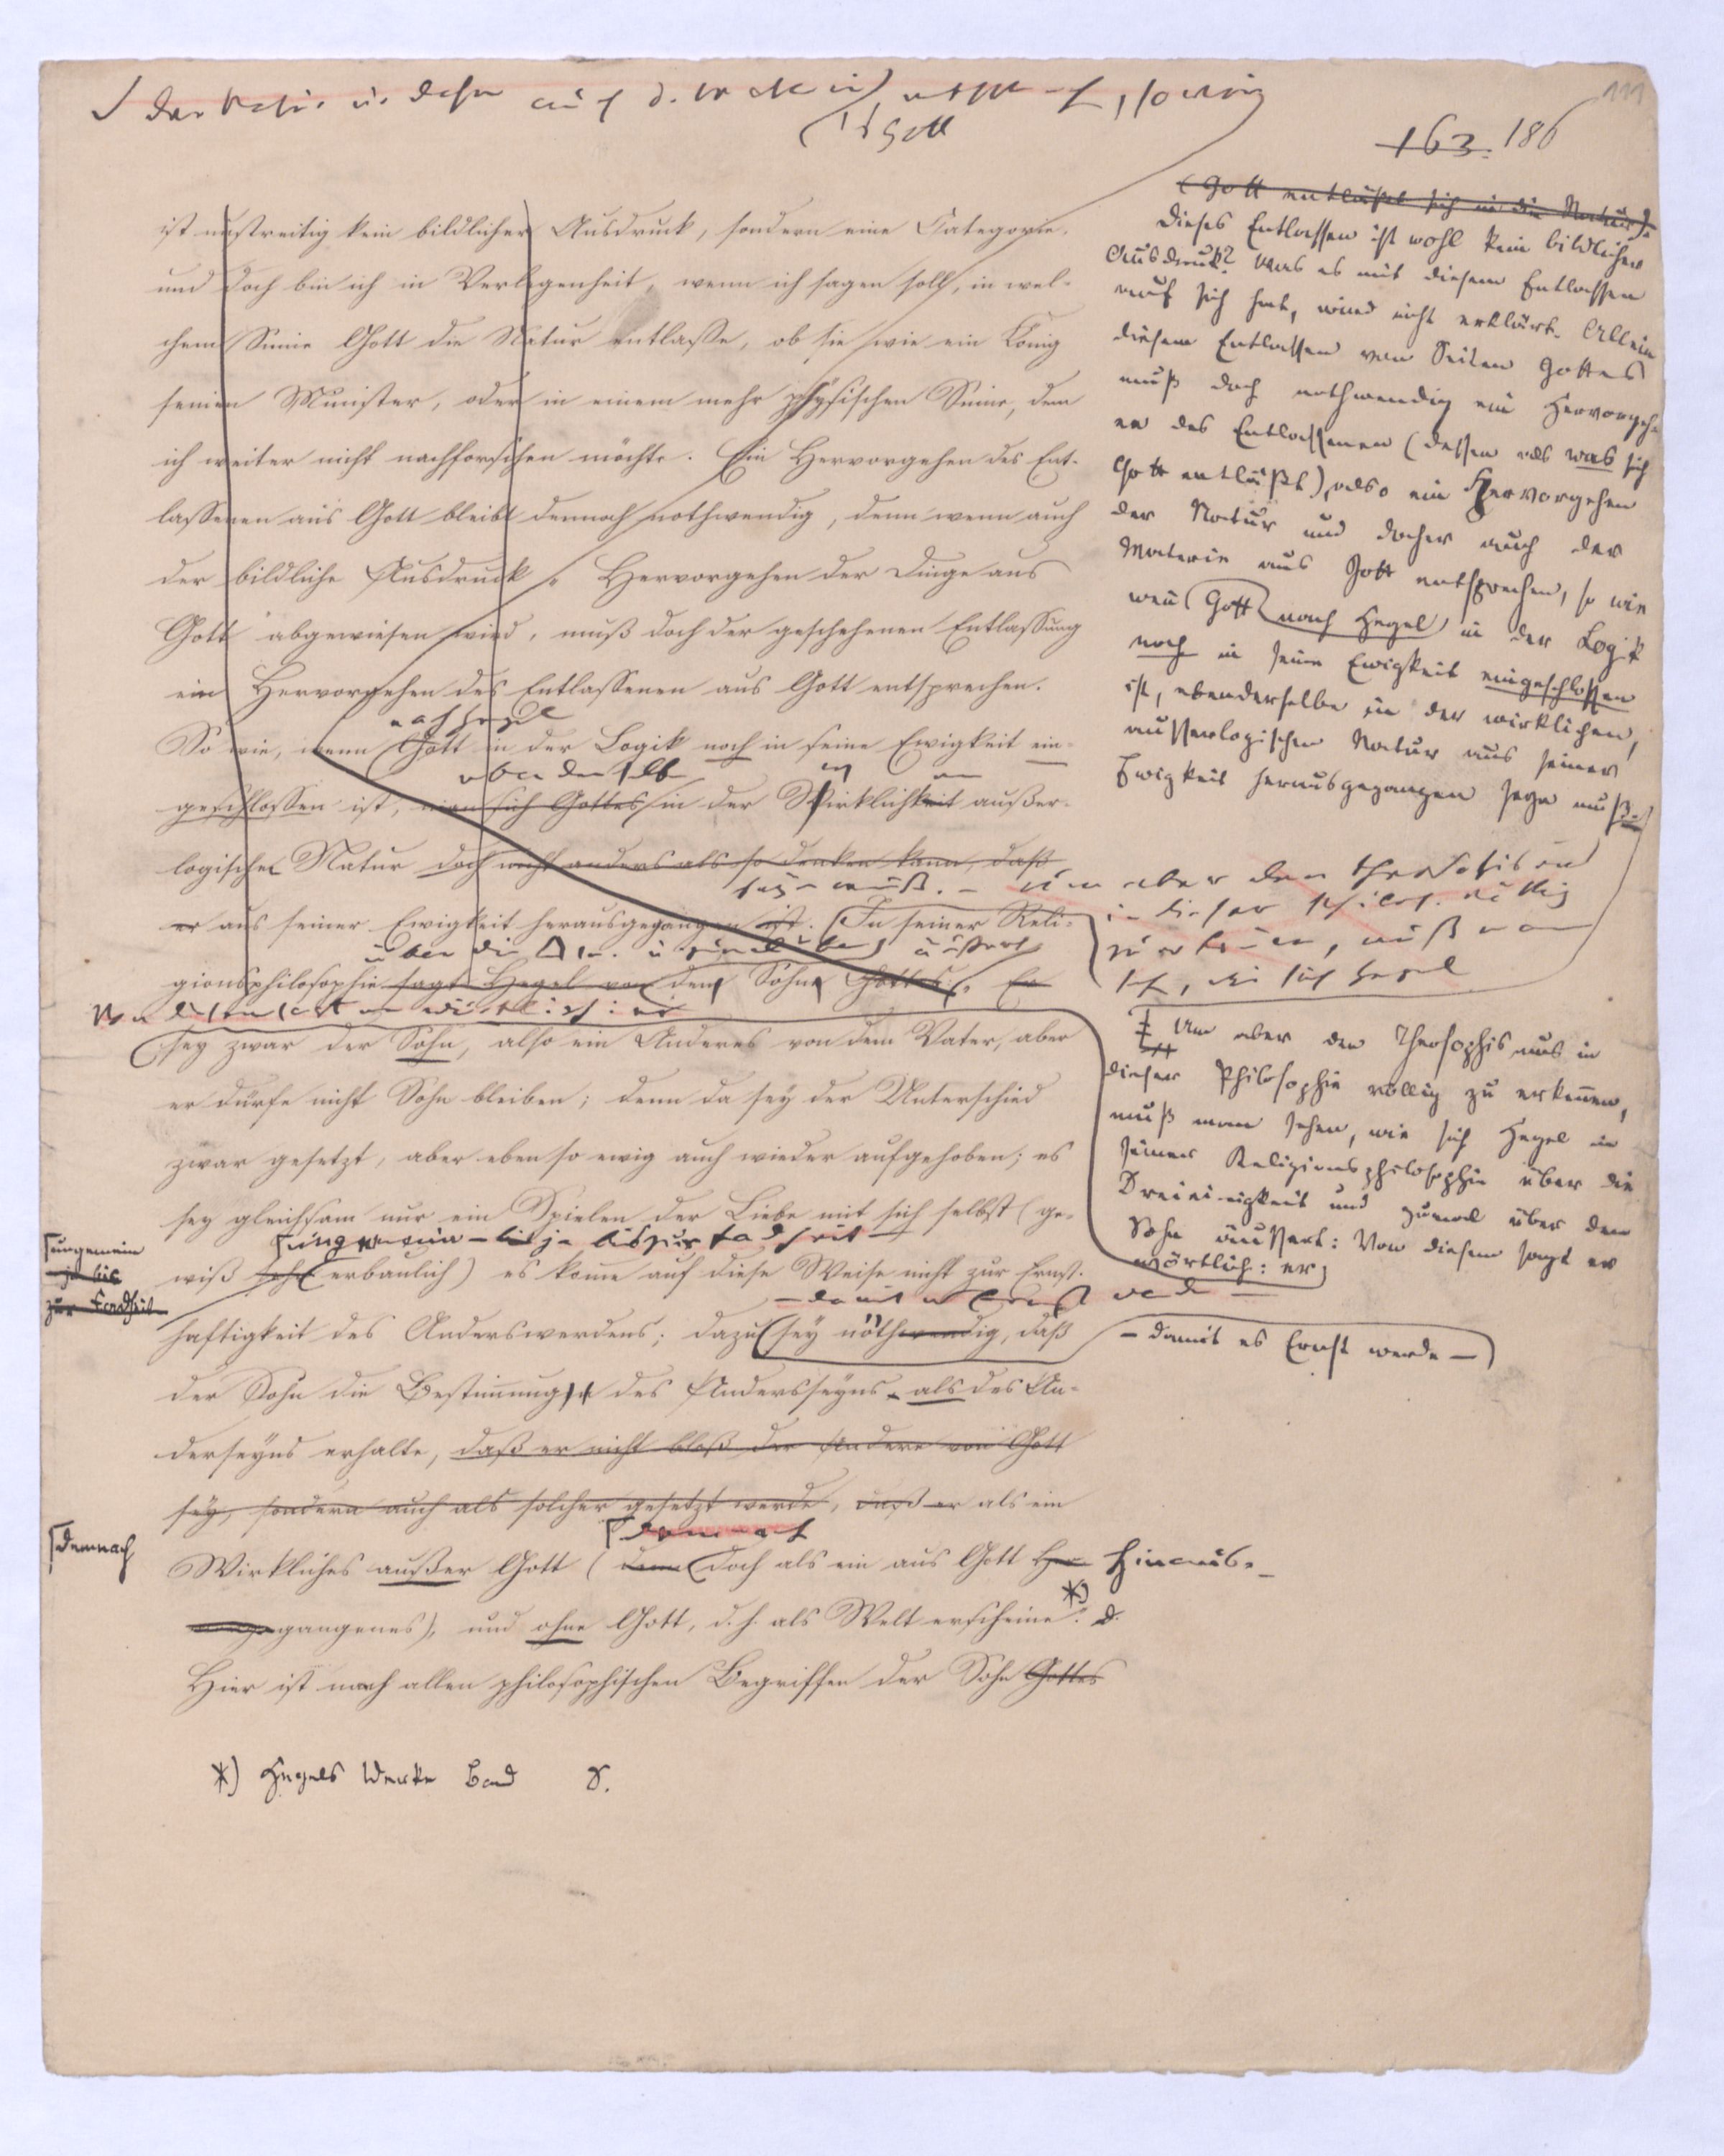 111
der Natur u. daher auch d. Materie aus Gott entsprech, so wie
163. 186
ist unstreitig kein bildlicher Ausdruck, sondern eine Categorie,
und doch bin ich in Verlegenheit, wenn ich sagen soll, in wel-
chem Sinne Gott die Natur entlasse, ob sie wie ein König
seinen Minister, oder in einem mehr physischen Sinne, dem
ich weiter nicht nachforschen möchte. Ein Hervorgehen des Ent-
lassenen aus Gott bleibt dennoch nothwendig, denn wenn auch
der bildliche Ausdruck „Hervorgehen der Dinge aus
Gott abgewiesen wird, muß doch der geschehenen Entlassung
ein Hervorgehen des Entlassenen aus Gott entsprechen.
nach Hegel
So wie, wenn Gott in der Logik noch in seine Ewigkeit ein-
ebenderselbe
geschlossen ist, man sich Gottes in der Wirklichkeit außer-
logischen Natur doch nicht anders als so denken kann, daß
seyn muß. – Um aber den Theosophismus
er aus seiner Ewigkeit herausgegangen ist. In seiner Reli-
über die u. zumal über äußert
gionsphilosophie sagt Hegel von dem Sohne Gottes: Er
Von diesem sagt er wörtlich: er
sey zwar der Sohn, also ein Anderes von dem Vater, aber
er dürfe nicht Sohn bleiben; denn da sey der Unterschied
zwar gesetzt, aber eben so ewig auch wieder aufgehoben; es
sey gleichsam nur ein Spielen der Liebe mit sich selbst (ge-
ungemein – ja bis zur Fadheit –
wiß sehr erbaulich) es komme auf diese Weise nicht zur Ernst-
– damit es Ernst werde –
haftigkeit des Anderswerdens; dazu sey nöthwendig, daß
der Sohn die Bestimmung des Andersseyns als des An-
derseyns erhalte, daß er nicht bloß der Andere von Gott
sey, sondern auch als solcher gesetzt werde, daß er als ein
demnach
Wirkliches außer Gott (denn doch als ein aus Gott Hinaus-
gegangenes), und ohne Gott, d. h. als Welt erscheine *).
Hier ist nach allen philosophischen Begriffen der Sohn Gottes
*) Hegels Werke Band S.
ungemein
– ja bis
zur Fadheit
demnach
(Gott entläßt sich in die Natur).
Dieses Entlassen ist wohl kein bildlicher
Ausdruck? Was es mit diesem Entlassen
auf sich hat, wird nicht erklärt. Allein
diesem Entlassen von Seiten Gottes
muß doch nothwendig ein Hervorgeh-
en des Entlassenen (dessen als was sich
Gott entläßt), also ein Hervorgehen
der Natur und daher auch der
Materie aus Gott entsprechen, so wie
wenn Gott nach Hegel in der Logik
noch in seine Ewigkeit eingeschlossen
ist, ebenderselbe in der wirklichen,
ausserlogischen Natur aus seiner
Ewigkeit herausgegangen seyn muß.
in dieser Philos. völlig
zu erkennen, muß man
seh, wie sich Hegel
Um aber den Theosophismus in
dieser Philosophie völlig zu erkennen,
muß man sehen, wie sich Hegel in
seiner Religionsphilosophie über die
Dreieinigkeit und zumal über den
Sohn äussert: Von diesem sagt er
wörtlich: er
– damit es Ernst werde –